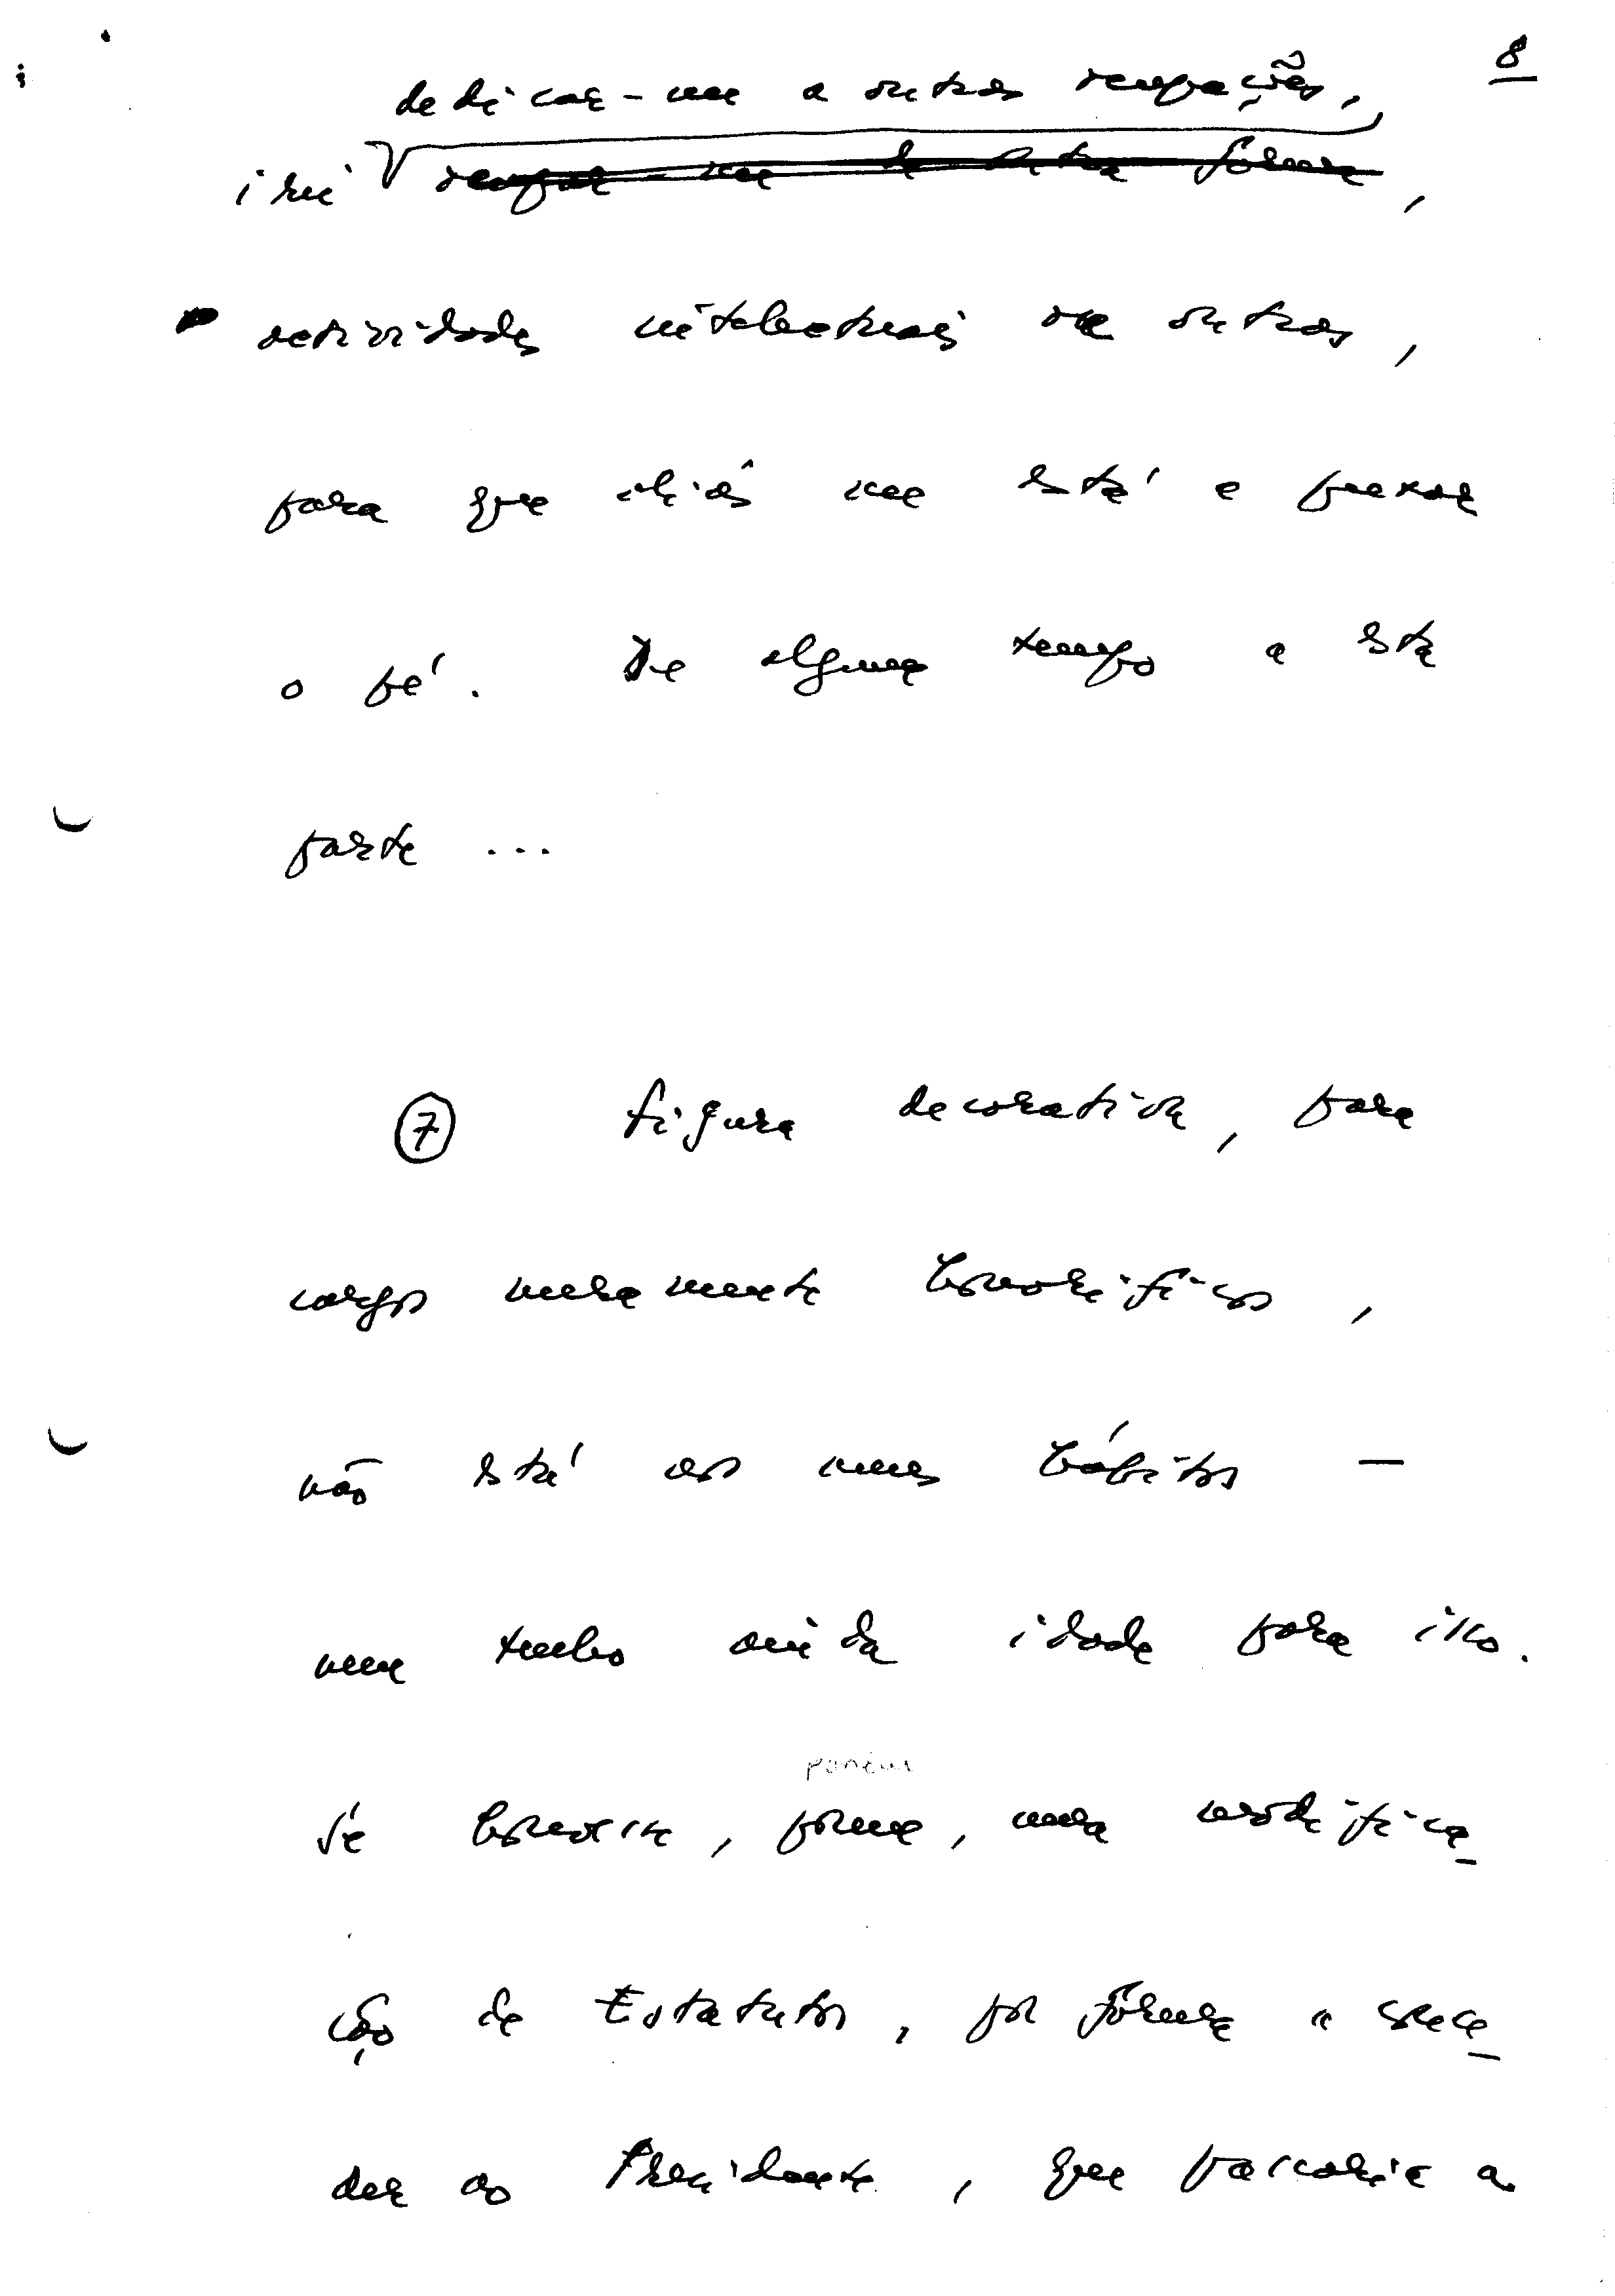 8
dedicar-me a outras ocupações,
irei ocupar-me de outra forma,
actividades intelectuais ou outras,
para que aliás me está a puxar
o pé. De algum tempo a esta
parte ...
7 Figura decorativa, para
cargo meramente honorífico,
não está nos meus hábitos –
nem tenho ainda idade para isso.
porém
Se houver, porém, uma modifica-
ção de Estatutos, por forma a conce-
der ao Presidente, que passaria a